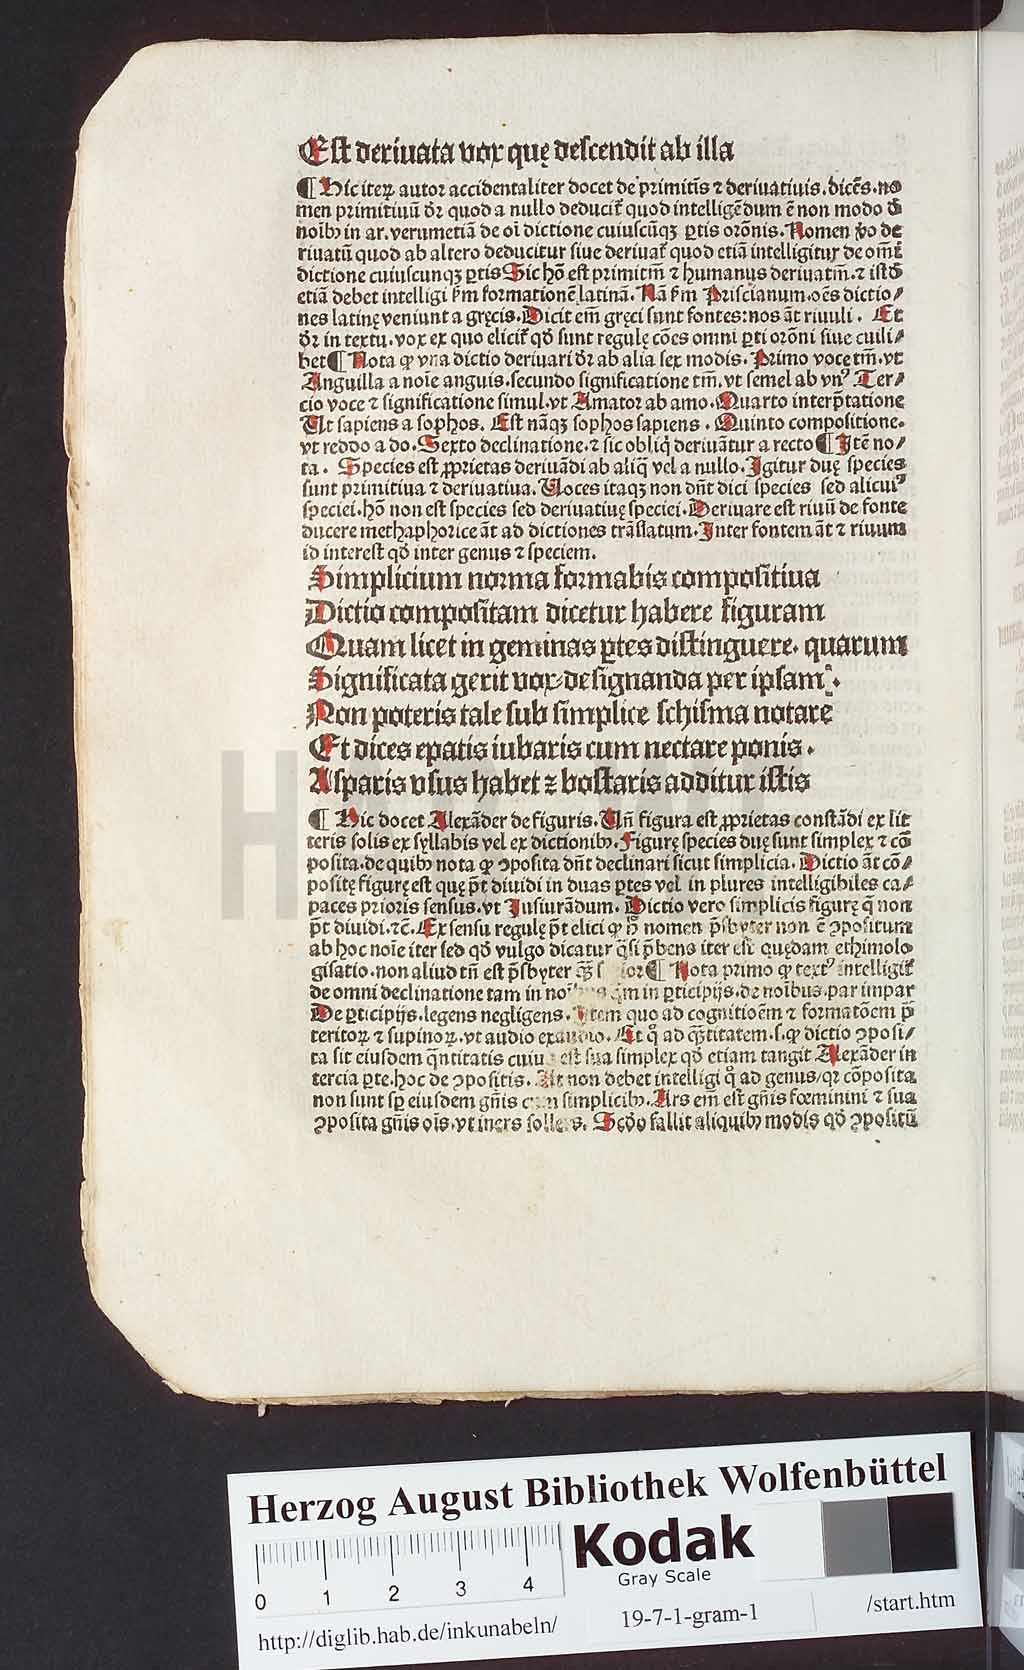 Est deriuata vox quę descendit ab illa
¶ Hic iteꝝ autor accidentaliter docet de primitiis ⁊ deriuatiuis. dicẽs. no
men primitiuũ dꝛ quod a nullo deducit̃ quod intelligẽdum ẽ non modo d̃
noĩbꝫ in ar. verumetiã de oĩ dictione cuiuscũqꝫ ꝑtis orõnis. Nomen ꝟo de
riuatũ quod ab altero deducitur siue deriuat̃ quod etiã intelligitur de omĩ
dictione cuiuscunqꝫ ꝑtis Sic hõ est primitiũ ⁊ humanus deriuatiũ. ⁊ istd̃
etiã debet intelligi ẜm formationẽ latinã. Nã ẜm Priscianum. oẽs dictio/
nes latinę veniunt a gręcis. Dicit em̃ gręci sunt fontes: nos ãt riuuli. Et
dꝛ in textu. vox ex quo elicit̃ qd̃ sunt regulę cões omni ꝑti orõni siue cuili/
bet ¶ Nota ꝙ vna dictio deriuari dꝛ ab alia sex modis. Primo voce tm̃. vt
Anguilla a noĩe anguis. secundo significatione tm̃. vt semel ab vnꝰ Ter/
cio voce ⁊ significatione simul. vt Amator ab amo. Quarto interp̃tatione
Ut sapiens a sophos. Est nãqꝫ sophos sapiens. Quinto compositione.
vt reddo a do. Sexto declinatione. ⁊ sic obliq̃ deriuãtur a recto ¶ Itẽ no/
ta. Species est ꝓprietas deriuãdi ab aliq̃ vel a nullo. Igitur duę species
sunt primitiua ⁊ deriuatiua. Uoces itaqꝫ non dñt dici species sed alicuiꝰ
speciei. hõ non est species sed deriuatiuę speciei. Deriuare est riuũ de fonte
ducere methaphorice ãt ad dictiones trãslatum. Inter fontem ãt ⁊ riuum
id interest qd̃ inter genus ⁊ speciem.
Simplicium norma formabis compositiua
Dictio compositam dicetur habere figuram
Quam licet in geminas ꝑtes distinguere. quarum
Significata gerit vox designanda per ipsam.
Non poteris tale sub simplice schisma notare
Et dices epatis iubaris cum nectare ponis.
Asparis vsus habet ⁊ bostaris additur istis
¶ Hic docet Alexãder de figuris. Uñ figura est ꝓprietas constãdi ex lit
teris solis ex syllabis vel ex dictionibꝫ. Figurę species duę sunt simplex ⁊ cõ
posita. de quibꝫ nota ꝙ ꝯposita dñt declinari sicut simplicia. Dictio ãt cõ/
positę figurę est quę p̃t diuidi in duas ꝑtes vel in plures intelligibiles ca/
paces prioris sensus. vt Iusiurãdum. Dictio vero simplicis figurę q̃ non
p̃t diuidi. ⁊c̃. Ex sensu regulę p̃t elici ꝙ h̃ nomen p̃sbyter non ẽ ꝯpositum
ab hoc noĩe iter sed qd̃ vulgo dicatur q̃si p̃bens iter est quędam ethimolo
gisatio. non aliud tñ est p̃sbyter ¶ Nota primo ꝙ textꝰ intelligit̃
de omni declinatione tam in in ꝑticipijs. de noĩbus. par impar
De ꝑticipijs. legens negligens. Item quo ad cognitioẽm ⁊ formatõem p̃
teritoꝝ ⁊ supinoꝝ. vt audio exaudio. Et q̊ ad q̃titatem. s. ꝙ dictio ꝯposi/
ta sit eiusdem q̃ntitatis est sua simplex qd̃ etiam tangit Alexãder in
tercia ꝑte. hoc de ꝯpositis. At non debet intelligi q̊ ad genus/ qꝛ cõposita
non sunt sꝑ eiusdem gñis cum simplicibꝫ. Ars em̃ est gñis fœminini ⁊ sua
ꝯposita gñis oĩs. vt iners sollers. Scd̃o fallit aliquibꝫ modis qd̃ ꝯpositũ
HAB WF
Herzog August Bibliothek Wolfenbüttel
0 1 2 3 4
Kodak
Gray Scale
http://diglib.hab.de/inkunabeln/ 19-7-1-gram-1 /start.htm